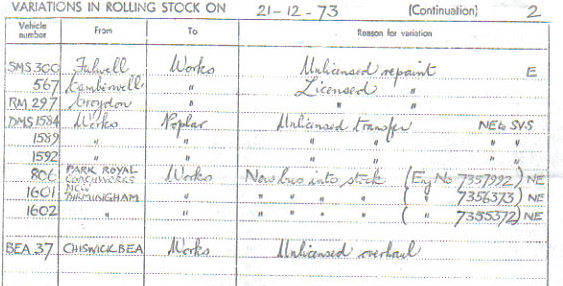 VARIATIONS IN ROLLING STOCK ON 21-12-73 (Continuation) 2
Vehicle number From To Reason for variation
SMS 300 Fulwell Works Unlicensed repaint E
567 Camberwell " Licensed "
RM 297 Croydon " " "
DMS 1584 Works Poplar Unlicensed transfer NEW SVS
1589 " " " "
1592 " " " "
806 PARK ROYAL COACHWORKS Works New bus into stock (Eng No 7357992) NE
1601 NEW BIRMINGHAM " " " " " ( " 7356373) NE
1602 " " " " " " ( " 7355372) NE
BEA 37 CHISWICK BEA Works Unlicensed overhaul